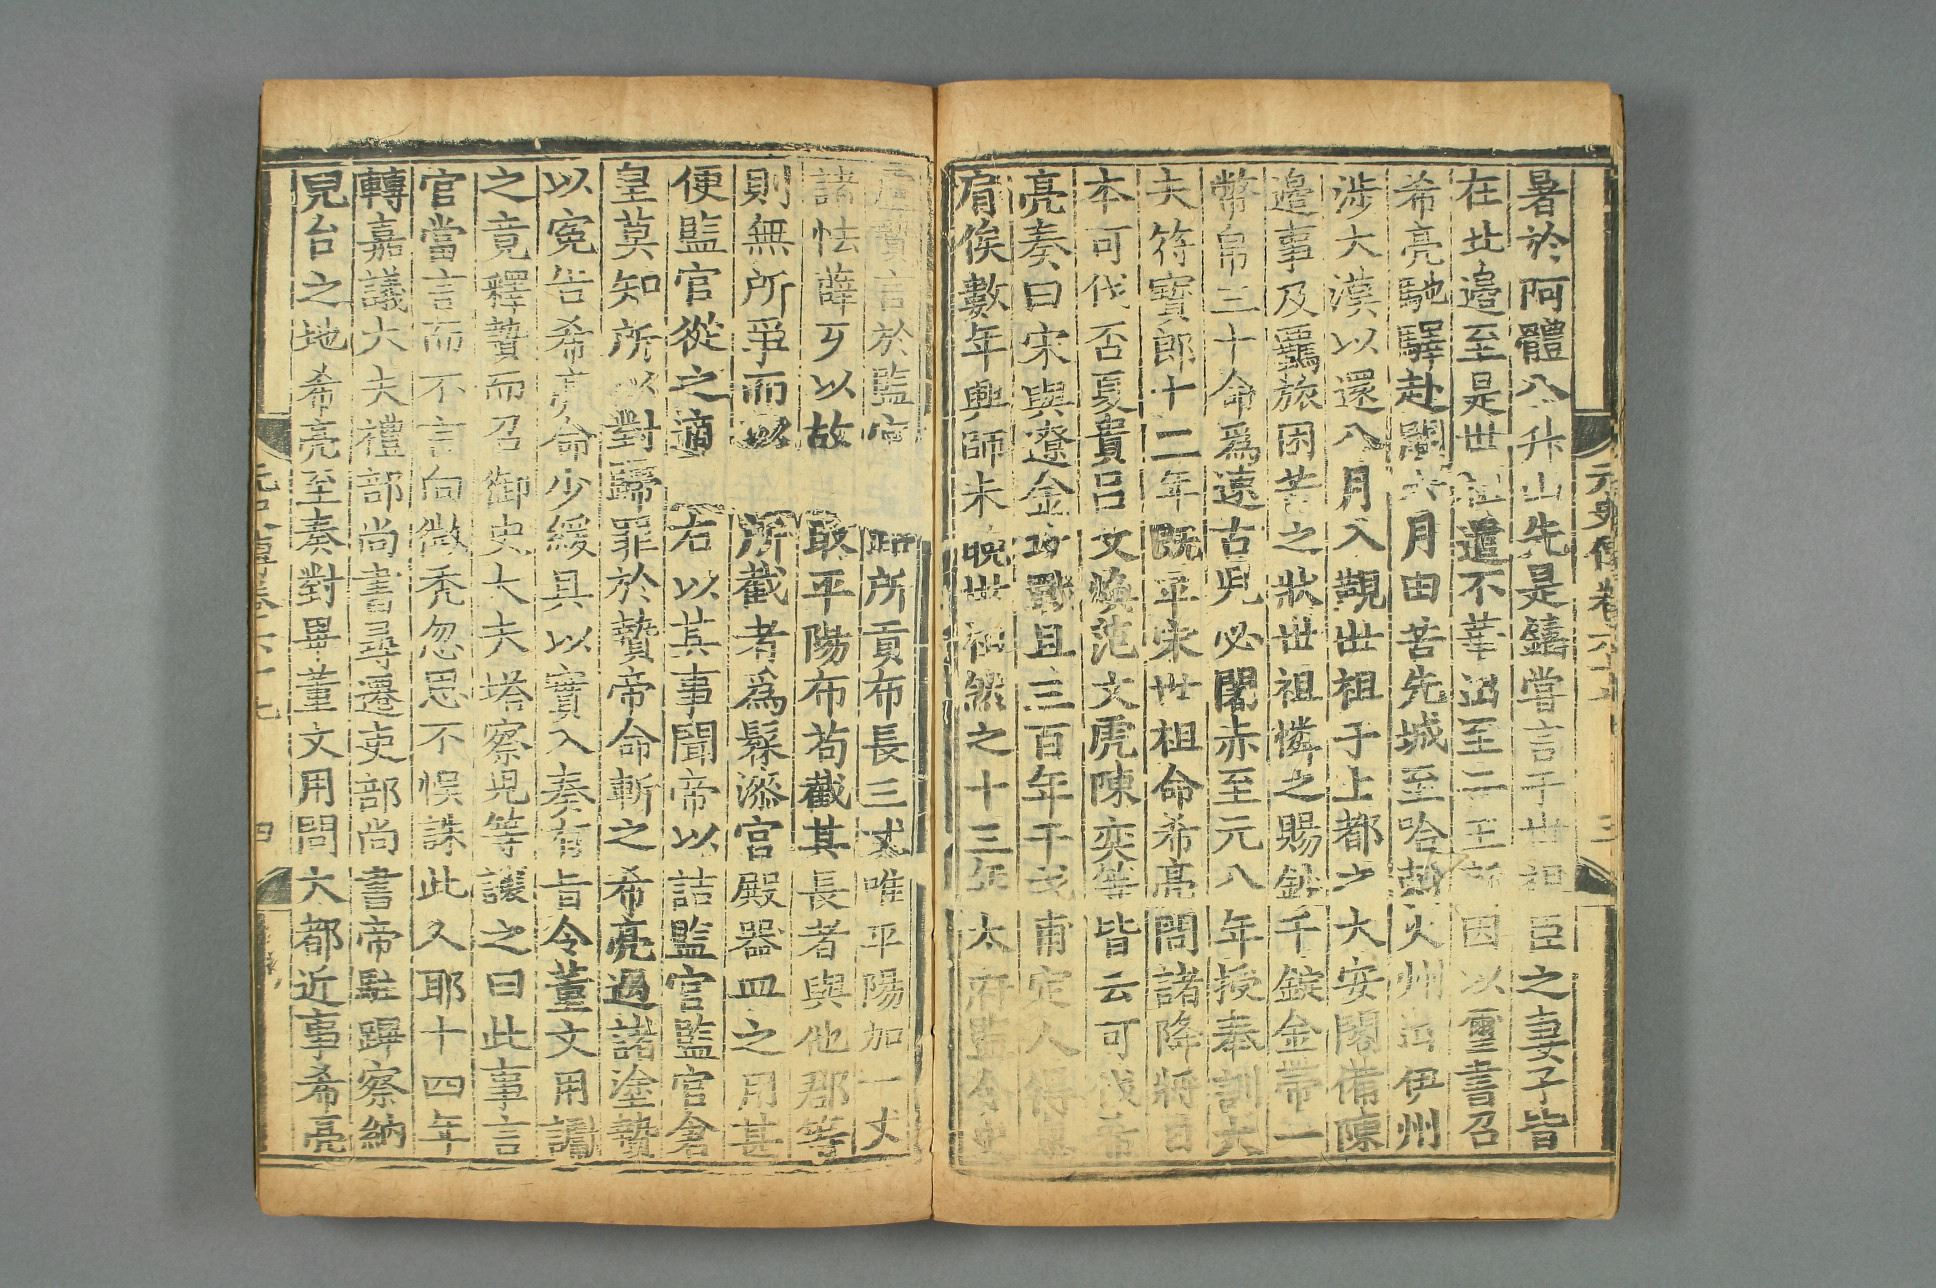 暑於阿體八升山先是鑄嘗言于世祖臣之妻子皆
在北邊至是世祖遣不華出至二王所因以璽書召
希亮馳驛赴闕六月由苦先城至哈剌火州出伊州
涉大漠以還八月入覲世祖于上都之大安閣備陳
邊事及羈旅困苦之狀世祖憐之賜鈔千錠金帶一
幣帛三十命爲速古兒必闍赤至元八年授奉訓大
夫符寶郎十二年既平宋世祖命希亮問諸降將日
本可伐否夏貴呂文煥范文虎陳奕等皆云可伐希
亮奏曰宋與遼金攻戰且三百年干戈甫定人得息
肩俟數年興師未晩世祖然之十三年太府監令史
盧贄言於監官 所貢布長三丈唯平陽加一丈
諸怯薛歹以故 取平陽布苟截其長者與他郡等
則無所爭而以 所截者爲髹漆宮殿器皿之用甚
便監官從之適 右以其事聞帝以詰監官監官倉
皇莫知所以對歸罪於贄帝命斬之希亮遇諸塗贄
以寃告希亮命少緩具以實入奏有旨令董文用讞
之竟釋贄而召御史大夫塔察兒等讓之曰此事言
官當言而不言向微禿忽思不悞誅此人耶十四年
轉嘉議大夫禮部尚書尋遷吏部尚書帝駐蹕察納
兒台之地希亮至奏對畢董文用問大都近事希亮
元史傳卷六十七 三
元史傳卷六十七 四